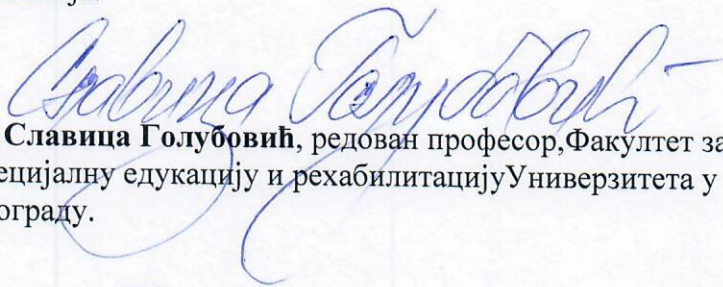 Славица Голубовић
Славица Голубовић, редован професор,Факултет за
ецијалну едукацију и рехабилитацијуУниверзитета у
ограду.